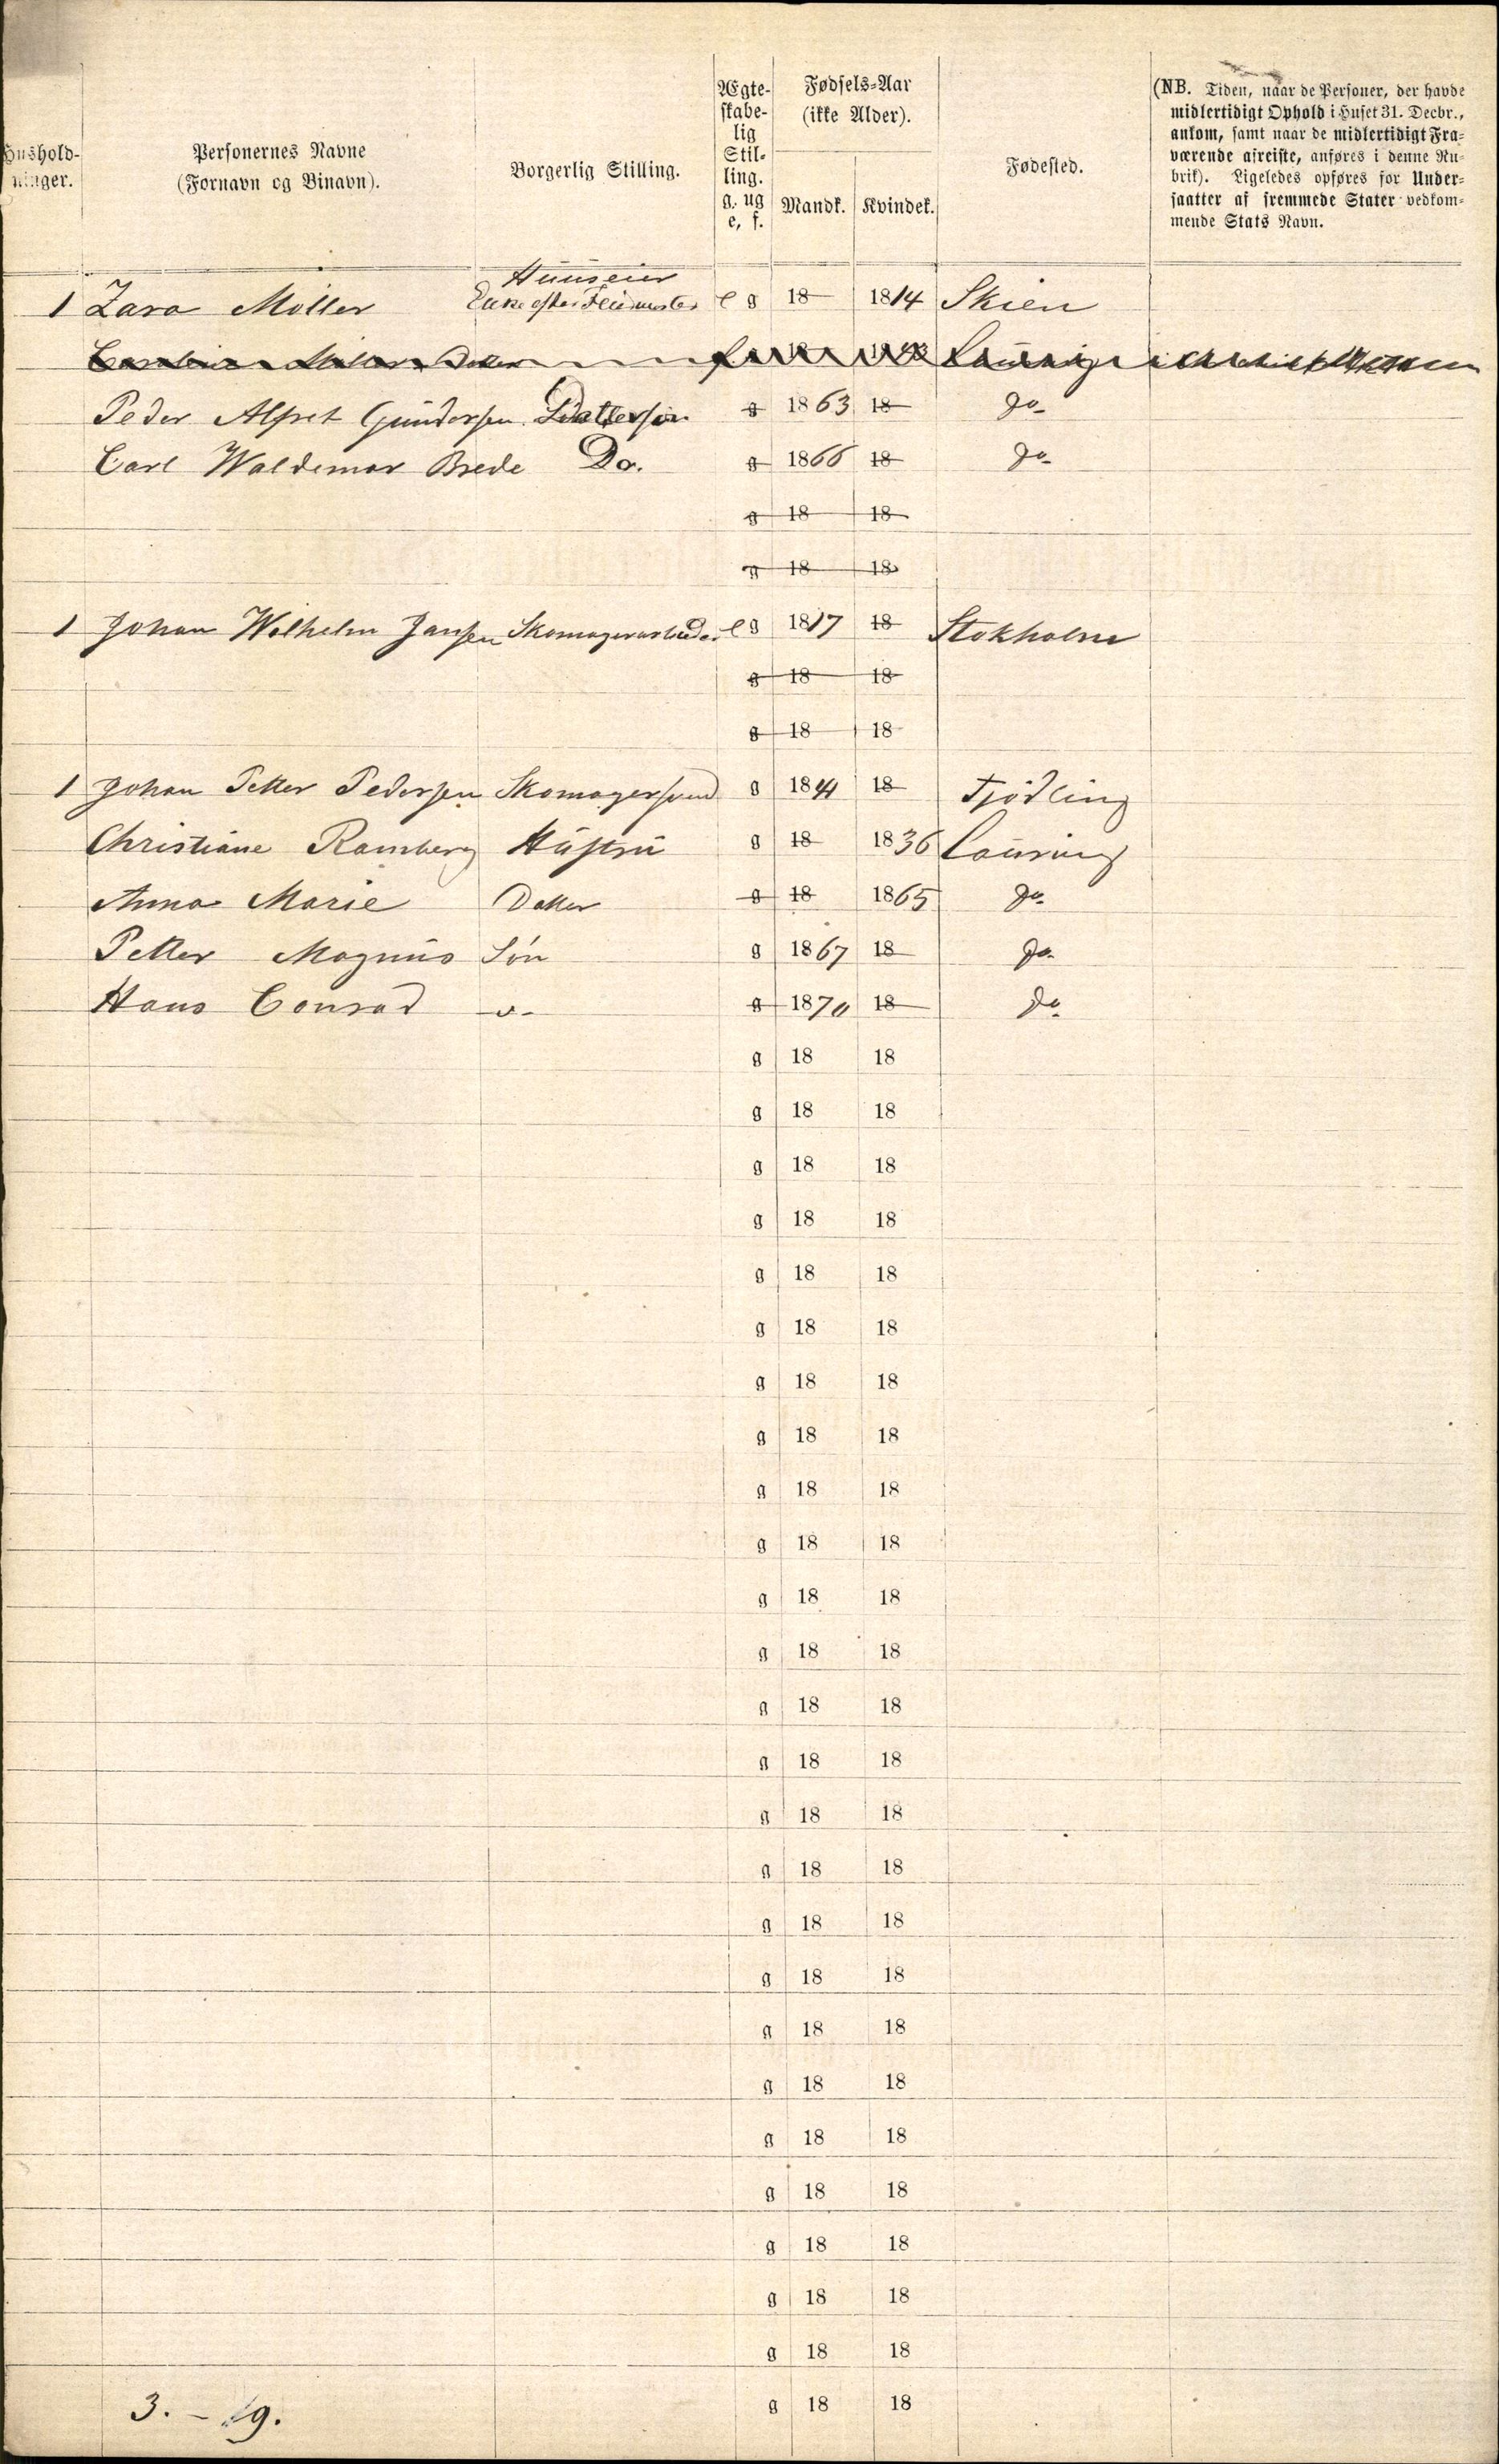 Hushold-
ninger.
Personernes Navne
(Fornavn og Binavn).
Borgerlig Stilling.
Ægte-
skabe-
lig
Stil-
ling.
g. ug
e, f.
Fødsels-Aar
(ikke Alder).
Mandk. Kvindek.
Fødested.
(NB. Tiden, naar de Personer, der havde
midlertidigt Ophold i Huset 31. Decbr.,
ankom, samt naar de midlertidigt Fra-
værende afreiste, anføres i denne Ru-
brik). Ligeledes opføres for Under-
saatter af fremmede Stater vedkom-
mende Stats Navn.
Huuseier
1 Zara Møller Enke efter e g 18 1814 Skien
Peder Alfret Gündersen Dattersøn g 1863 18 Do
Carl Waldemar Brede Do. g 1866 18 Do
g 18 18
g 18 18
1 Johan Wilhelm Jansen Skomagerarbeider e g 1817 18 Stokholm
g 18 18
g 18 18
1 Johan Petter Pedersen Skomagersvend g 1841 18 Tjødling
Christiane Ramberg Hüstrü g 18 1836 Laürvig
Anna Marie Datter g 18 1865 Do
Petter Magnüs Søn g 1867 18 Do
Hans Conrad -o- g 1870 18 Do
g 18 18
g 18 18
g 18 18
g 18 18
g 18 18
g 18 18
g 18 18
g 18 18
g 18 18
g 18 18
g 18 18
g 18 18
g 18 18
g 18 18
g 18 18
g 18 18
g 18 18
g 18 18
g 18 18
g 18 18
g 18 18
g 18 18
g 18 18
g 18 18
g 18 18
3. - 9. g 18 18